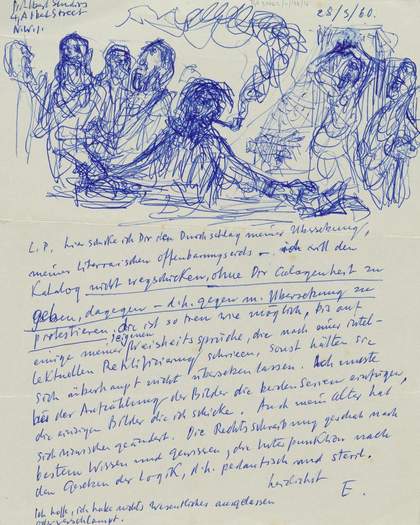 4, Abbot Street
N.W.1.
28/5/60.
L.P. hier schicke ich Dir den Durchschlag meiner Übersetzung,
meiner literarischen Offenbarungseids – ich will den
Katalog nicht wegschicken, ohne Dir Gelegenheit zu
geben, dagegen – d.h. gegen m. Übersetzung zu
protestieren. Sie ist so treu wie möglich, bis auf
einige meiner eigenen Weisheitssprüche, die nach einer intel-
lektuellen Rektifizierung schrieen, sonst hätten sie
sich überhaupt nicht übersetzen lassen. Ich musste
bei der Aufzählung der Bilder die beiden Serien einfügen,
die einzigen Bilder die ich schicke. Auch mein Alter hat
sich inzwischen geändert. Die Rechtschreibung geschah nach
bestem Wissen und Gewissen, die Interpunktion nach
den Gesetzen der Logik, d.h. pedantisch und stur.
herzlichst
E.
Ich hoffe, ich habe nichts wesentliches ausgelassen
oder verschlampt.